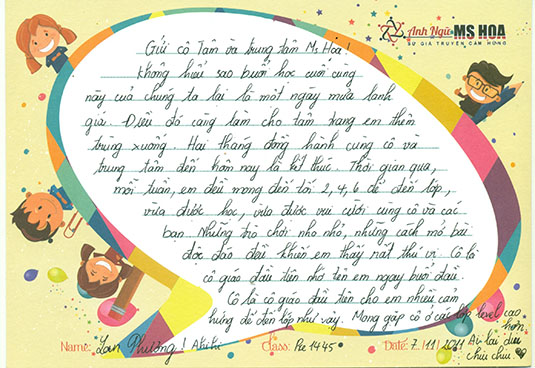 Anh Ngữ MS HOA
SỨ GIẢ TRUYỀN CẢM HỨNG
Gửi cô Tâm và trung tâm Ms Hoa!
Không hiểu sao buổi học cuối cùng
này của chúng ta lại là một ngày mưa lạnh
giá. Điều đó càng làm cho tâm trạng em thêm
trùng xuống. Hai tháng đồng hành cùng cô và
trung tâm đến hôm nay là kết thúc. Thời gian qua,
mỗi tuần, em đều mong đến tối 2, 4, 6 để đến lớp,
vừa được học, vừa được vui cười cùng cô và các
bạn. Những trò chơi nho nhỏ, những cách mở bài
độc đáo đều khiến em thấy rất thú vị. Cô là
cô giáo đầu tiên nhớ tên em ngay buổi đầu.
Cô là cô giáo đầu tiên cho em nhiều cảm
hứng để đến lớp như vậy. Mong gặp cô ở các lớp level cao
hơn
Name: Lan Phương! Hihi Class: Pre 1445 Date: 7/11/2011
chiu chiu